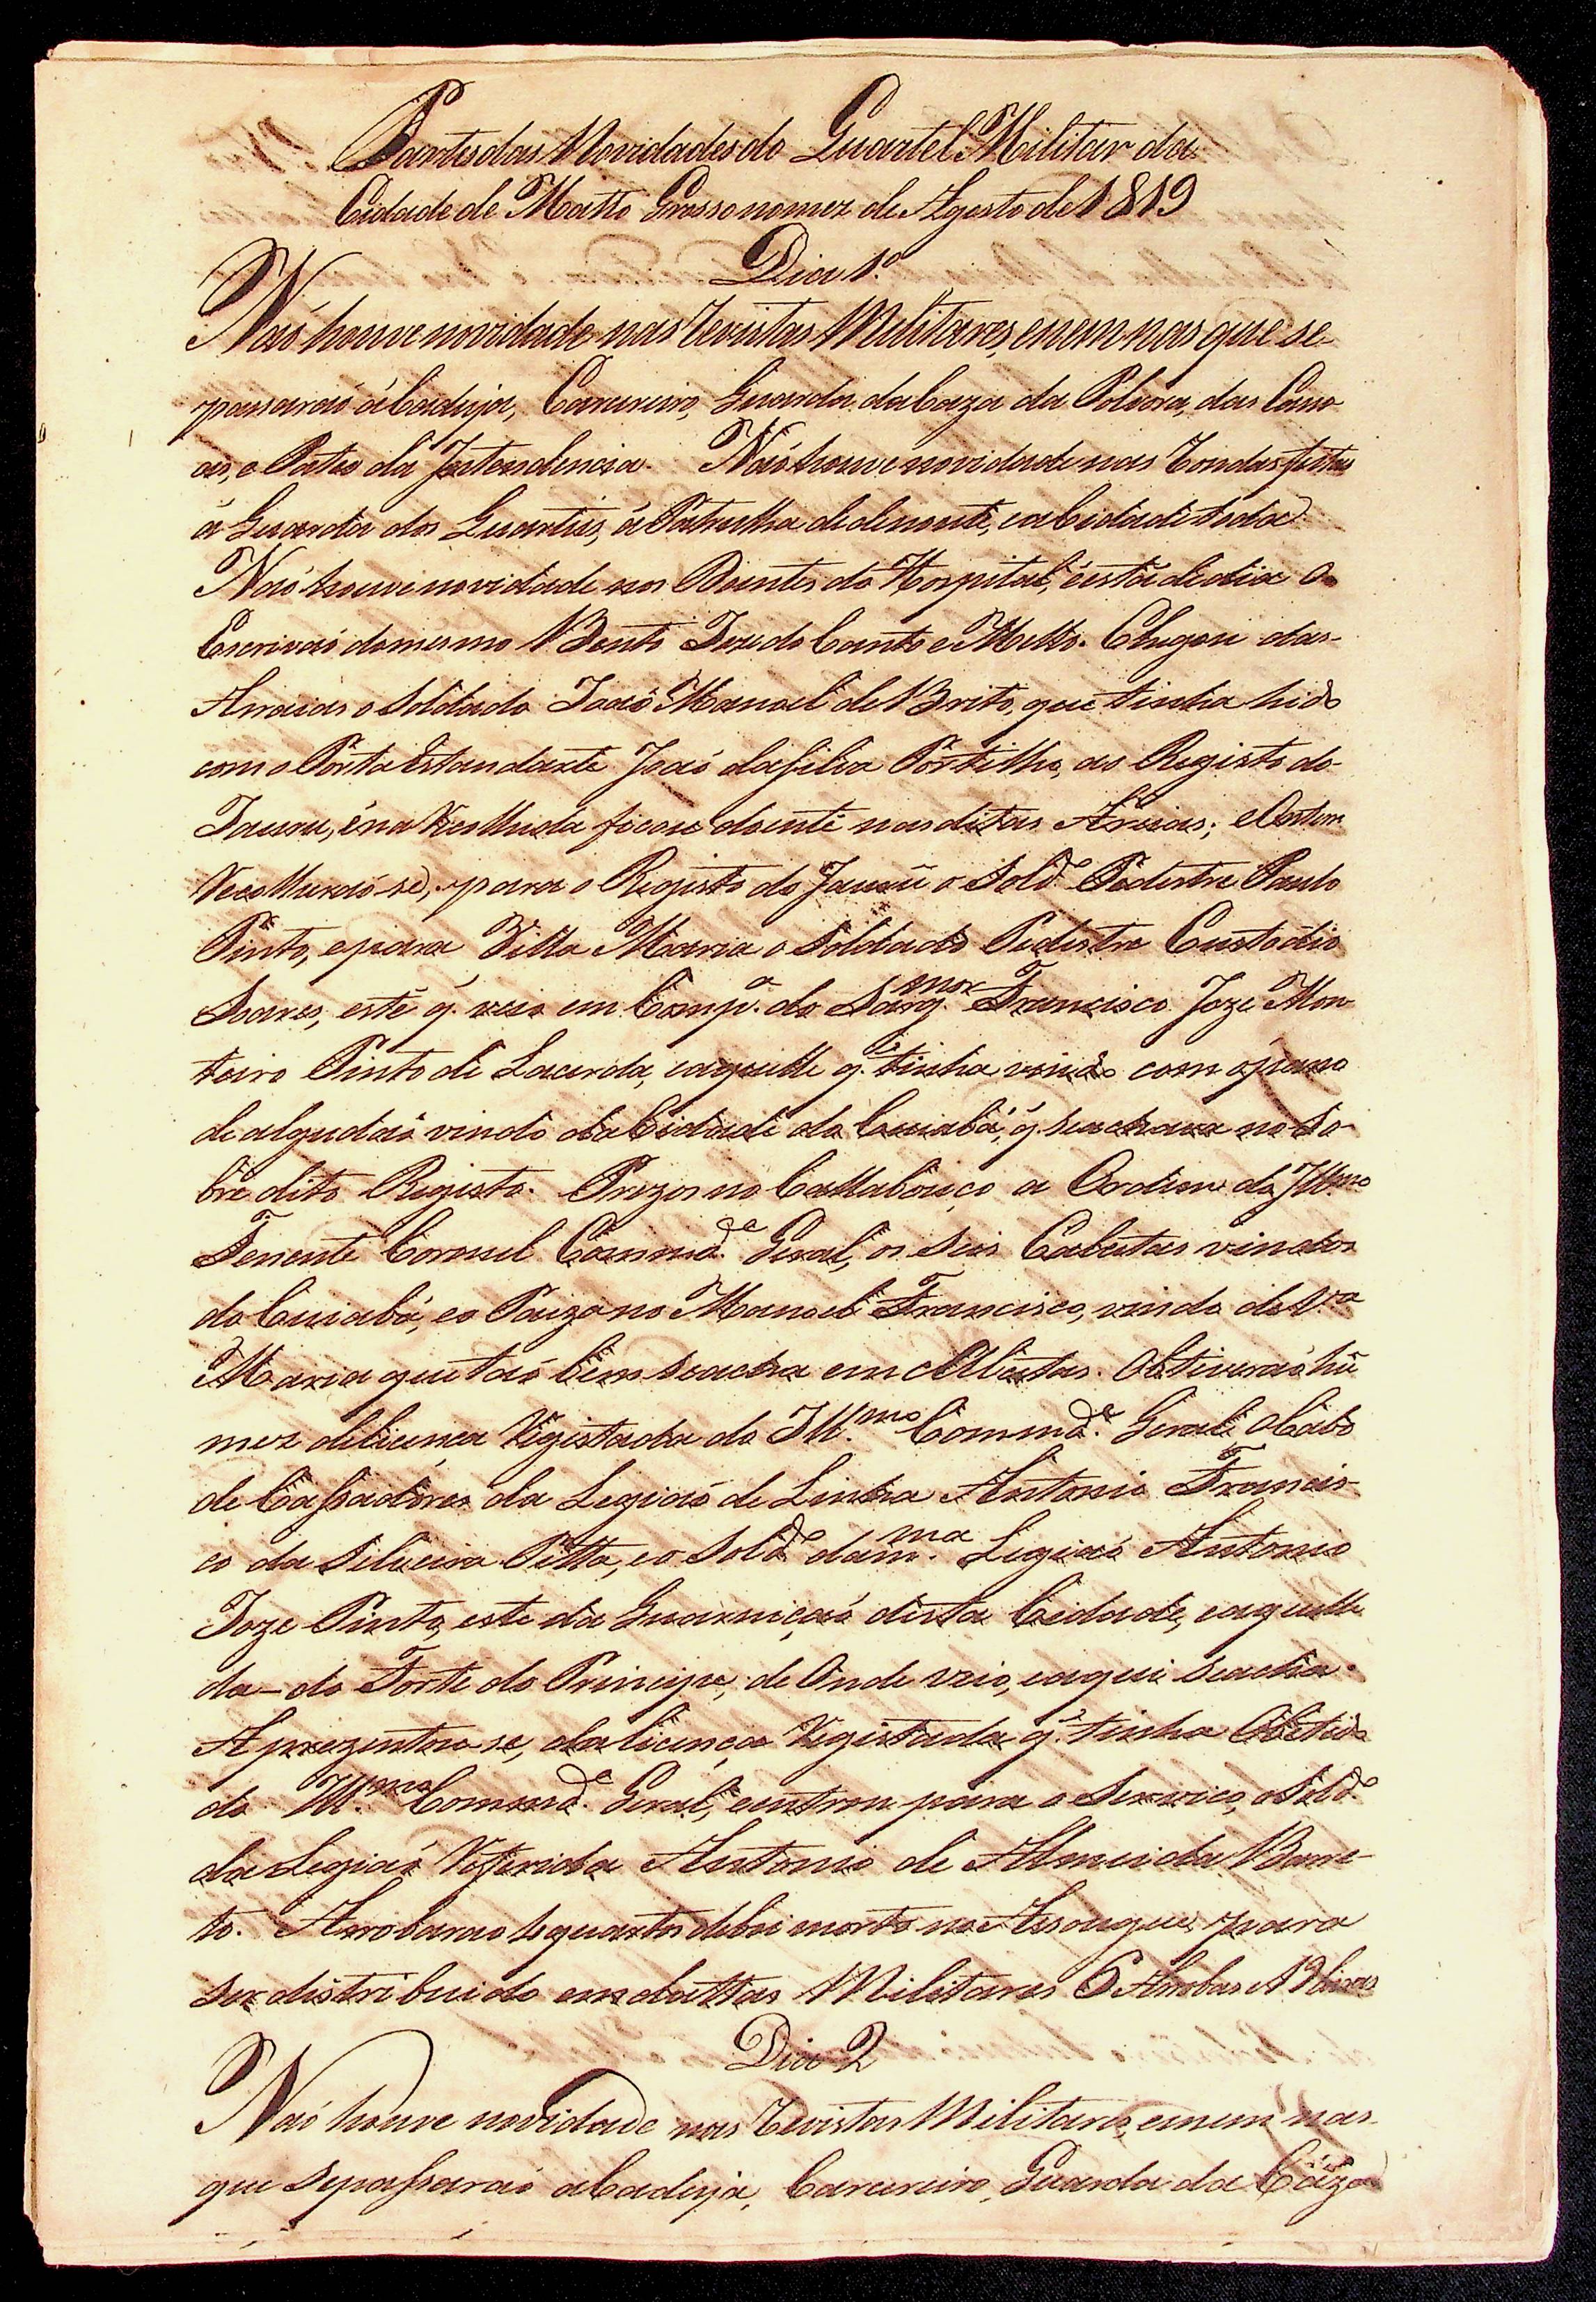 Partes das Novidades do Quartel Militar da
Cidade de Matto Grosso no mez de Agosto de 1819
Dia 1.º
Naõ houve novidade nas Revistas Militares, e nem nas que se
passaraõ á Cadeya, Carcereiro, Guarda da Caza da Polvora, das Cano
as, e Patio da Intendencia. Naõ houve novidade nas Rondas feitas
á Guarda dos Quarteis, á Patrulha de demonte, e a Cidade toda.
Naõ houve novidade nos Doentes do Hospital, e está de dia o
Escrivaõ do mesmo Bento Joze do Canto e Mello. Chegou das
Arraias o Soldado Joaõ Manoel de Brito, que tinha hido
com o Porta Estandarte Joaõ da Silva Portilho, ao Registo do
Jaurú, e na Recolhida ficou doente nas ditas Areias; e Ontem
Recolheraõ-se, para o Registo do Jaurú o Sold.º Pedestre Paulo
Pinto, e para Villa Maria o Soldado Pedestre Custodio
Soares, este q. veio em Comp.ª do Sarg.mor Francisco Joze Mon
teiro Pinto de Lacerda, e aquelle q. tinha vindo com o pano
de algudaõ vindo da Cidade do Cuiabá, q. se achava no So
bre dito Registo. Prezos no Callabouço a Ordem do Ill.mo
Tenente Coronel Command.e Geral, os seis Cabestas vindos
do Cuiabá, e o Paizano Manoel Francisco, vindo de V.a
Maria que taõ bem se acha em Albertas. Obtiveraõ hū
mez de licença Registada do Ill.mo Command.e Geral o Cabo
de Cassadores da Legiaõ de Linha Antonio Francis
co da Silveira Pitta, e o Sold.º da m.ma Legiaõ Antonio
Joze Pinto, este da Guarniçaõ desta Cidade, e aquelle
da do Forte do Principe, de Onde veio, e aqui se acha.
Aprezentou-se, da licença Registada q. tinha Obtido
do Ill.mo Command.e Geral, e entrou para o Serviço, o Sold.º
da Legiaõ Referida Antonio de Almeida Barre-
to. Arrobaraõ 4 quartos de boi morto no Assougue para
ser distribuido em dattas Militares 6 Arrobas e 19 livras
Dia 2
Naõ houve novidade nas Revistas Militares, e nem nas
que se passaraõ a Cadeya, Carcereiro, Guarda da Caza